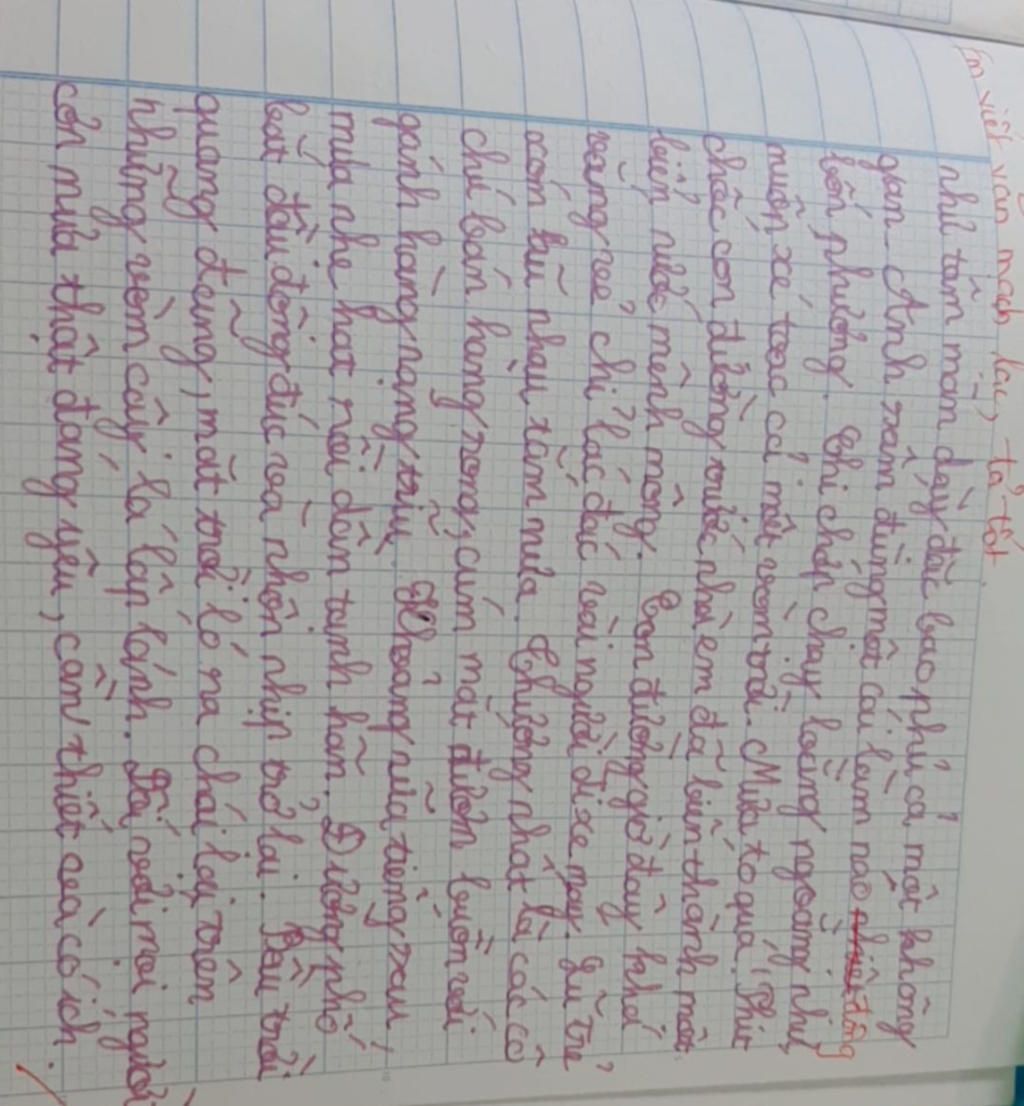 Em viết văn mạch lạc, tả tốt.
như tấm màn dày đặc bao phủ cả một không
gian. Ánh xầm đùng một cái làm náo động
bốn phương. Chi chớp chạy loằng ngoằng như
muốn xé toạc cả một vòm trời. Mưa to quá! Phút
chốc con đường trước nhà em đã biến thành một
biển nước mênh mông. Con đường giờ đây khá
vắng vẻ chỉ lác đác vài người đi xe máy. Lũ trẻ
xóm bũ nhau tắm mưa. Thương nhất là các cô
chú bán hàng rong, cúm mặt đượm buồn với
gánh hàng nặng trĩu. Khoảng nửa tiếng sau,
mưa nhẹ hạt rồi dần tạnh hẳn. Đường phố
bắt đầu đông đúc và nhộn nhịp trở lại. Bầu trời
quang đãng, mặt trời ló ra chói lọi trên
những vòm cây lá lấp lánh. Đối với mọi người
cơn mưa thật đáng yêu, cần thiết và có ích.